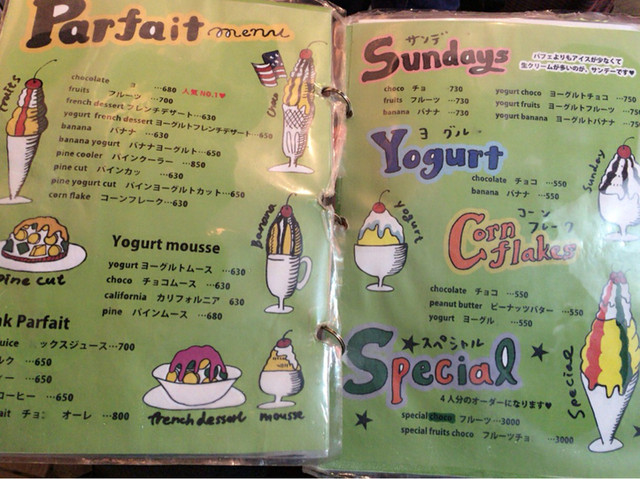 Parfait menu
chocolate チョコ …680 人気 NO.1♥
fruits フルーツ …700
french dessert フレンチデザート…630
yogurt french dessert ヨーグルトフレンチデザート…650
banana バナナ …630
banana yogurt バナナヨーグルト…650
pine cooler パインクーラー …850
pine cut パインカッ …630
pine yogurt cut パインヨーグルトカット…650
corn flake コーンフレーク…630
fruits
Choco
pine cut
Banana
Yogurt mousse
yogurt ヨーグルトムース …630
choco チョコムース …630
california カリフォルニア 630
pine パインムース …680
nk Parfait
juice ックスジュース…700
ルク …650
ィー …650
コーヒー …650
fait チョ オーレ …800
french dessert
mousse
サンデ
Sundays
パフェよりもアイスが少なくて
生クリームが多いのが、サンデーです♥
choco チョ …730
fruits フルーツ …730
banana バナナ …730
yogurt choco ヨーグルトチョコ …750
yogurt fruits ヨーグルトフルーツ…750
yogurt banana ヨーグルトバナナ …750
Sunday
ヨ グル
Yogurt
chocolate チョコ …550
banana バナナ …550
yogurt
コーン
フレーク
Corn
flakes
chocolate チョコ …550
peanut butter ピーナッツバター …550
yogurt ヨーグル …550
★スペシャル
Special
4人分のオーダーになります♥
special choco フルーツ…3000
special fruits choco フルーツチョ …3000
Special